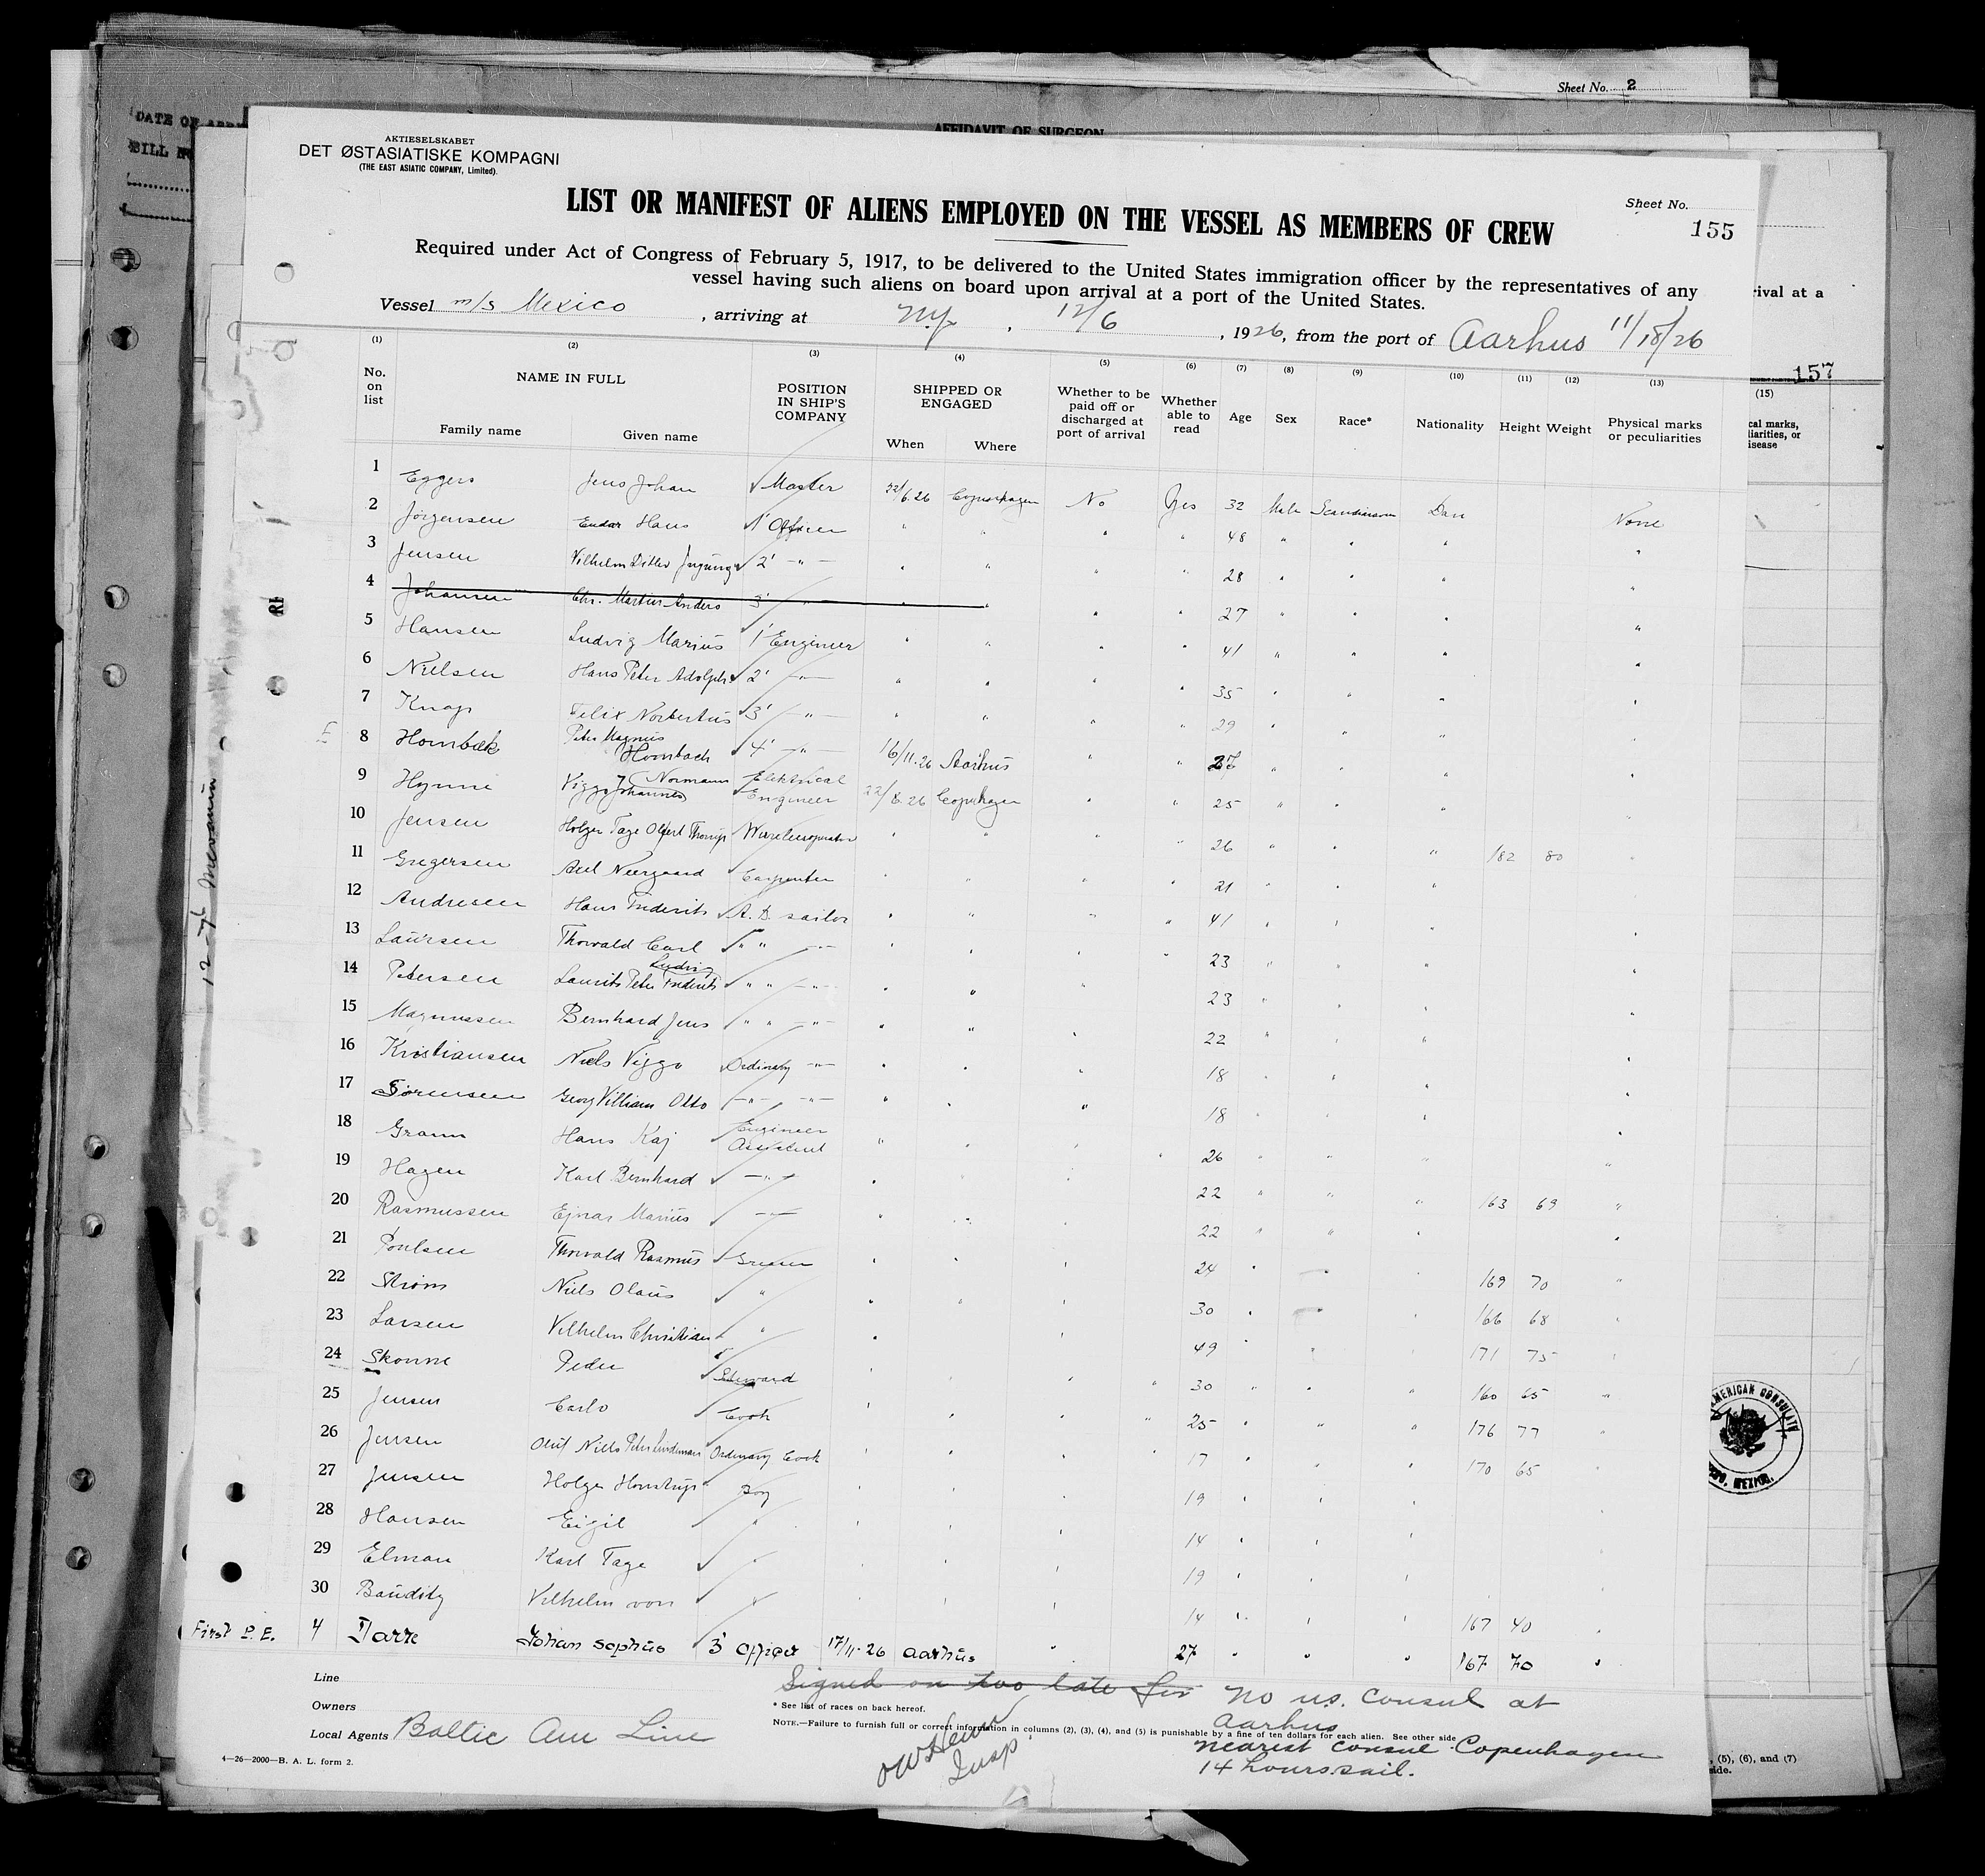 Sheet No. 2
DATE OF ARRI
AFFIDAVIT OF SURGEON
BILL
AKTIESELSKABET
DET ØSTASIATISKE KOMPAGNI
(THE EAST ASIATIC COMPANY, Limited).
Sheet No.
155
LIST OR MANIFEST OF ALIENS EMPLOYED ON THE VESSEL AS MEMBERS OF CREW
Required under Act of Congress of February 5, 1917, to be delivered to the United States immigration officer by the representatives of any
vessel having such aliens on board upon arrival at a port of the United States.
rival at a
Vessel m/s Mexico , arriving at N.Y. , 12/6 , 1926, from the port of Aarhus 11/18/26
157
(1) (2) (3) (4) (5) (6) (7) (8) (9) (10) (11) (12) (13)
(15)
No. on list
NAME IN FULL
Family name Given name
POSITION IN SHIP'S COMPANY
SHIPPED OR ENGAGED
When Where
Whether to be paid off or discharged at port of arrival
Whether able to read
Age Sex Race* Nationality Height Weight
Physical marks or peculiarities
cal marks,
liarities, or
isease
1 Eggers Jens Johan Master 22/6.26 Copenhagen No Yes 32 Male Scandinavian Dan None
2 Jörgensen Hans 1' Officer " " " " 48 " " " "
3 Jensen Vilhelm Ditlev 2' -"- " " " " 28 " " " "
4 Johansen Chr. Martin Anders 3' " " " " " 27 " " " "
5 Hansen Ludvig Marius 1' Engineer " " " " 41 " " " "
6 Nielsen Hans Peter Adolph 2' -"- " " " " 35 " " " "
7 Knap Felix Norbertus 3' -"- " " " " 29 " " " "
8 Hornbæk Peter Magnus Hornbach 4' -"- 16/11.26 Aarhus " " 27 " " " "
9 Hynne Viggo Johannes Normann Elektrical Engineer 22/6.26 Copenhagen " " 25 " " " "
10 Jensen Holger Tage Olfert Thorup Wirelessoperator " " " " 26 " " " 182 80 "
11 Gregersen Axel Neergaard Carpenter " " " " 21 " " " "
12 Andresen Hans Frederik A. B. sailor " " " " 41 " " " "
13 Laursen Thorvald Carl " " -"- " " " " 23 " " " "
14 Petersen Laurits Peter Frederik Ludvig " " -"- " " " 23 " " " "
15 Magnussen Bernhard Jens " " -"- " " " 22 " " " "
16 Kristiansen Niels Viggo Ordinary -"- " " " 18 " " " "
17 Sörensen Georg William Otto -"- -"- " " " 18 " " " "
18 Gram Hans Kaj Engineer Assistent " " " " 26 " " " "
19 Hagen Karl Bernhard -"- " " " 22 " " " 163 69 "
20 Rasmussen Ejnar Marius -"- " " " 22 " " " "
21 Poulsen Thorvald Rasmus Greaser " " " 24 " " " 169 70 "
22 Ström Niels Olaus " " " " 30 " " " 166 68 "
23 Larsen Vilhelm Christian " " " " 49 " " " 171 75 "
24 Skonne Peder Steward " " " " 30 " " " 160 65 "
25 Jensen Carlo Cook " " " " 25 " " " 176 77 "
26 Jensen Oluf Niels Peter Lindeman Ordinary Cook " " " " 17 " " " 170 65 "
27 Jensen Holger Boy " " " 19 " " "
28 Hansen Eigil " " " " 14 " " "
29 Elman Karl Tage " " " " 19 " " "
30 Bauditz Vilhelm von " " " " 14 " " " 167 40 "
First P. E. 4 Johan Sophus 3' Officer 17/11.26 Aarhus " 27 " " " 167 70 "
12-7/6
Signed on too late for
no us. consul at
Aarhus
nearest consul Copenhagen
14 hours sail.
Line
Owners
Local Agents Baltic Am Line
* See list of races on back hereof.
NOTE.—Failure to furnish full or correct information in columns (2), (3), (4), and (5) is punishable by a fine of ten dollars for each alien. See other side
Insp
4—26—2000—B. A. L. form 2.
, (5), (6), and (7)
side.
AMERICAN CONSULATE
MEXICO.